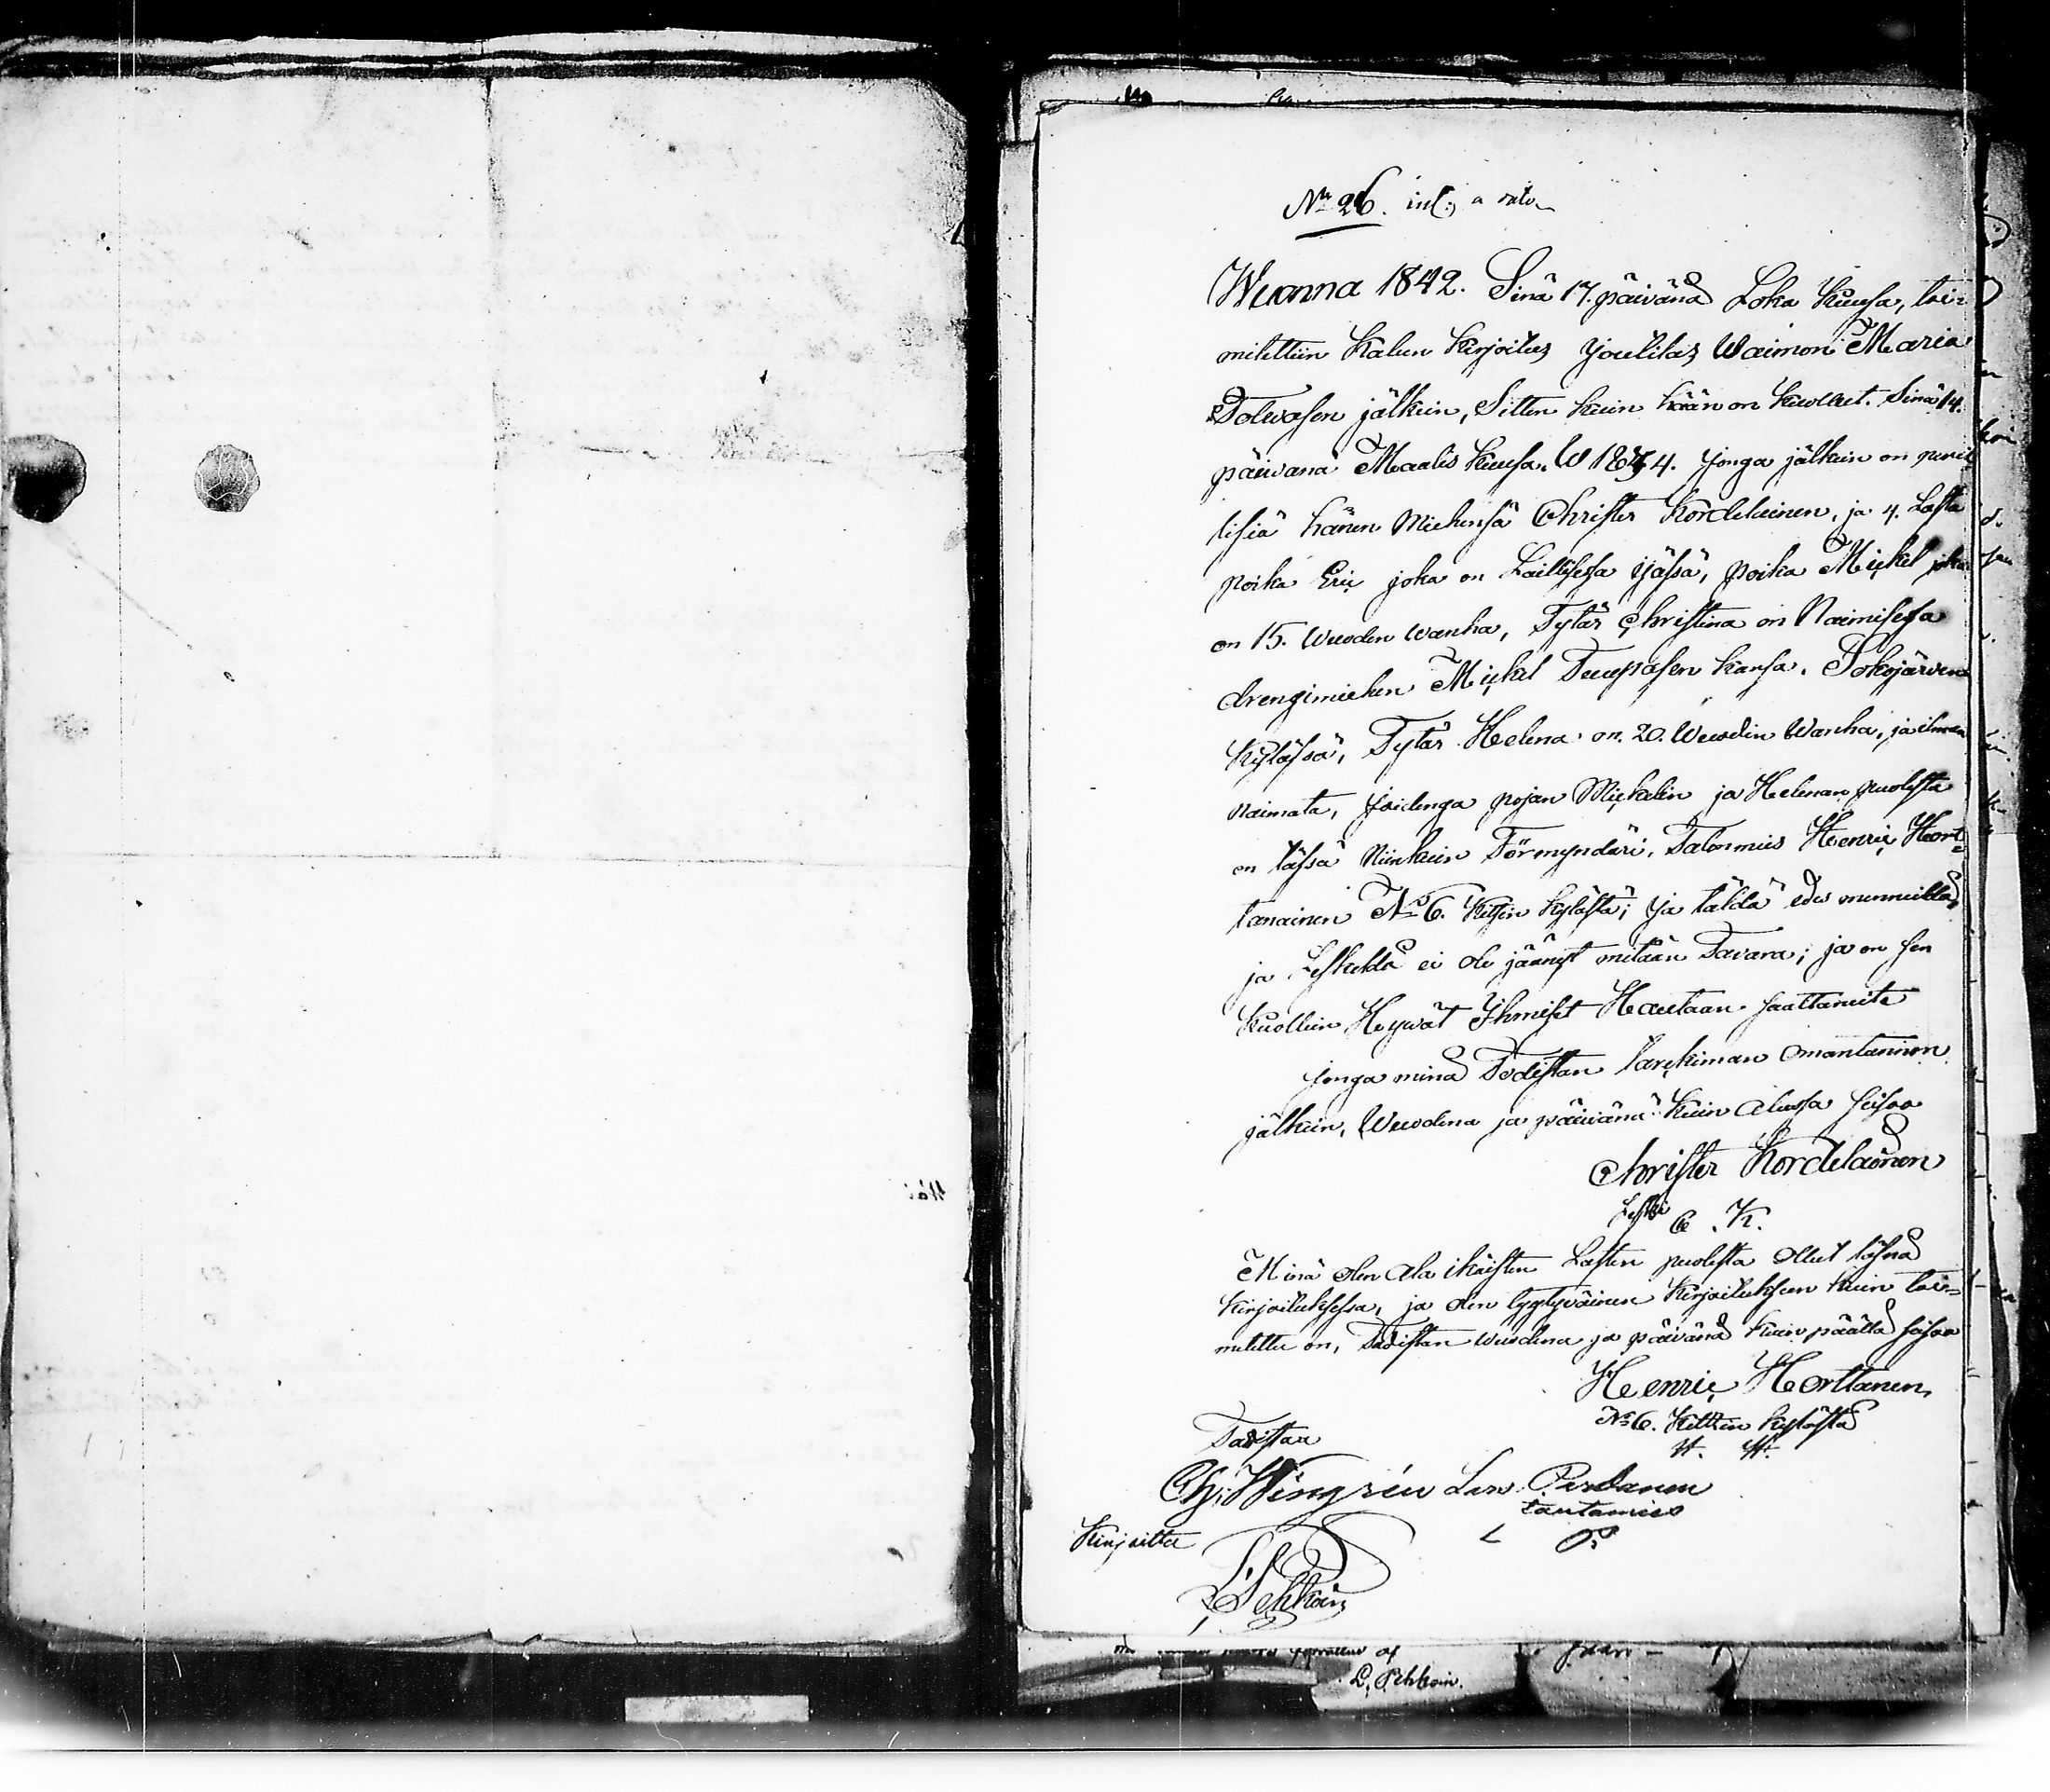 No 26.
Wuonna 1842. Sinä 17. päivänä Loka Kuusa, toi=
mitettiin Kalun Kirjoitus Joutilas Waimon Maria
Tolwasen jälkein, Sitten kuin hään on kuollut. Sinä 14.
päiwänä Maalis Kuusa. W 1834. Jonga jälkein on peril
lisiä hänen Miehensä Christer Kordelainen, ja 4. Lasta
poika Eric joka on Laillisesa ijäsä, poika Mickel joka
on 15. wuoden wanha, Tytär Christina on Naimisesa
drengimiehen Mickel Tuupasen kansa. Tokojärven
Kyläsä, Tytär Helena on. 20. Wuoden Wanha, ja ilman
naimata, joidenga pojan Mickelin ja Helenan puolesta
on läsä Niinkuin Förmyndäri, Talonmies Henric Hort=
tanainen No 6. Kitsin Kylästä; Ja tältä edes mennelldä,
ja Leskeldä ei ole jäänyt mitään Tavara; ja on sen
Kuollein Hyvät Ihmiset Hautaan saattaneite
Jonga minä Todistan larckiman omantunnon
jälkein, Wuodena ja päivänä Kuin Alussa seisoo
Christer Kordelainen
Leski C. K.
Minä olen Ala ikäisten Lasten puolesta ollut läsnä
Kirjoituksessa, ja olen tyytyväinen Kirjoitukseen kuin toi=
mitettu on, Todistan wuodena ja päivänä kuin päällä seisoo
Henric Horttanen,
No 6. Kittsin kylästä
H. H.
Todistaa
Ch: Wingrén Lars Pardanen
Lautamies
L P:
Kirjoitta
L: Pehkoin
L, Pehkoin.